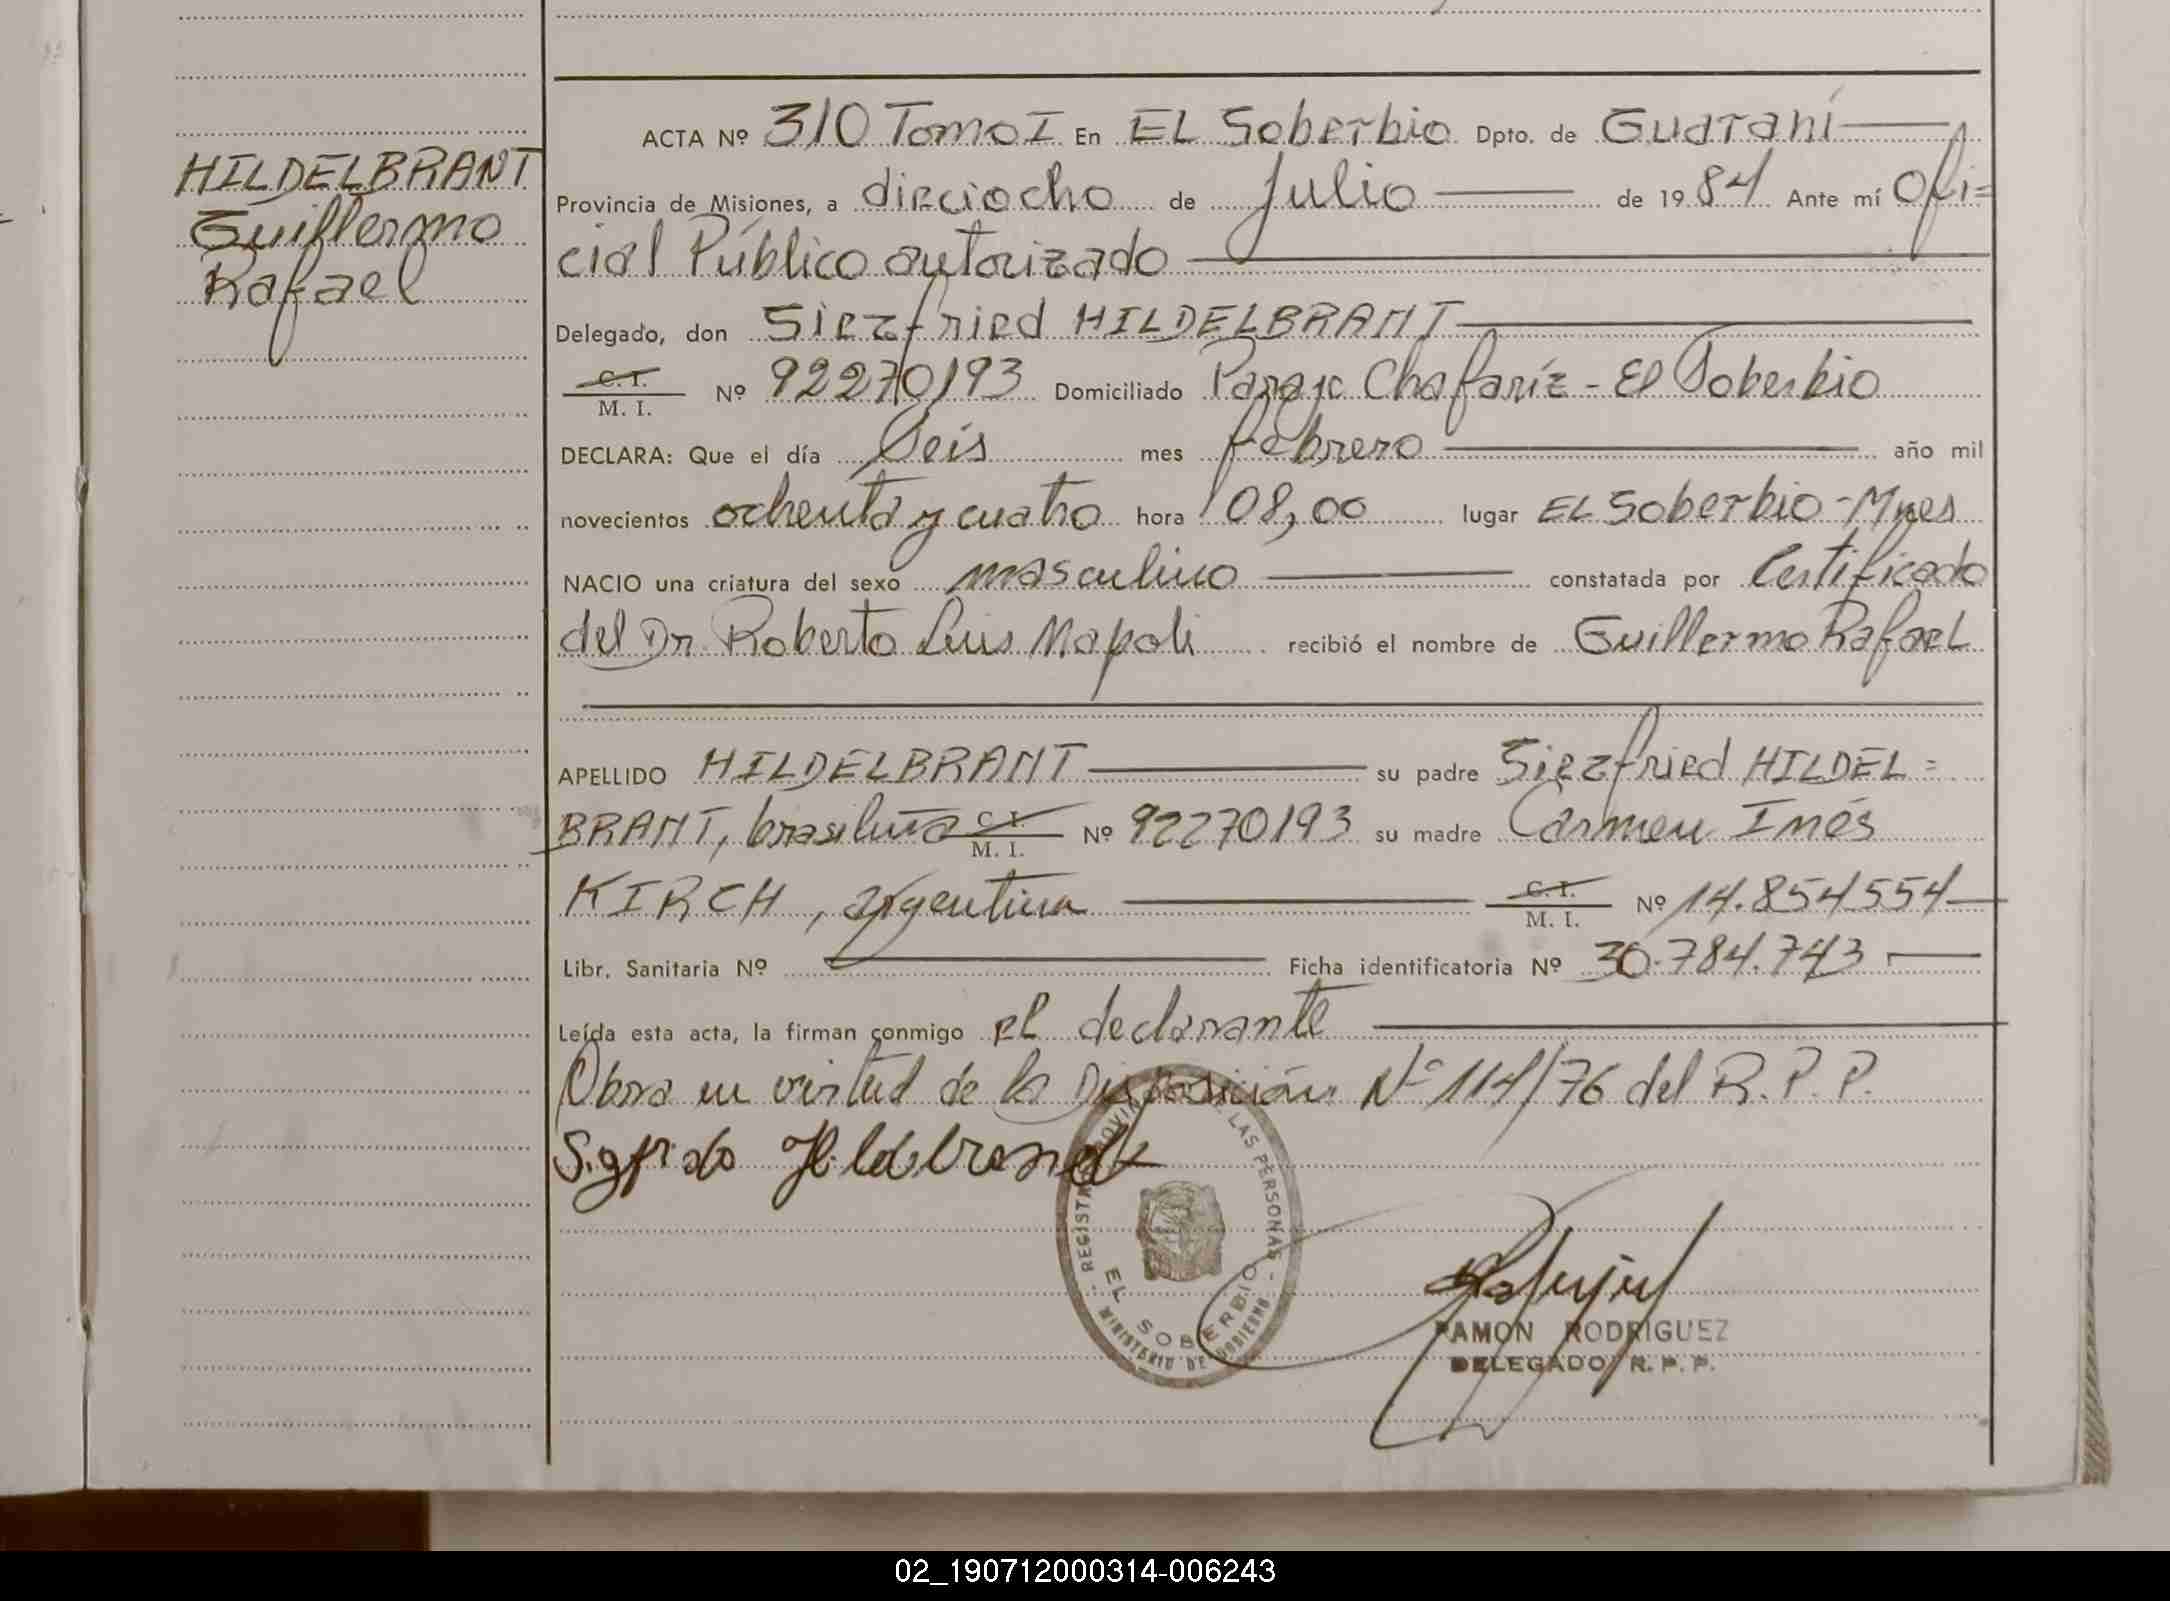 HILDELBRANT
Guillermo
Rafael
ACTA Nº 310 Tomo I En EL Soberbio Dpto. de Guaraní
Provincia de Misiones, a dieciocho de Julio de 1984 Ante mí Ofi=
cial Público autorizado
Delegado, don Siegfried HILDELBRANT
C. I. M. I. Nº 92270193 Domiciliado Paraje Chafaríz - El Soberbio
DECLARA: Que el día Seis mes febrero año mil
novecientos ochenta y cuatro hora 08,00 lugar EL Soberbio - Mnes
NACIO una criatura del sexo masculino constatada por Certificado
del Dr. Roberto Luis Napoli recibió el nombre de Guillermo Rafael
APELLIDO HILDELBRANT su padre Siegfried HILDEL=
BRANT, brasileña C. I. M. I. Nº 92270193 su madre Carmen Inés
KIRCH, argentina C. I. M. I. Nº 14.854554
Libr. Sanitaria Nº Ficha identificatoria Nº 30.784.743
Leída esta acta, la firman conmigo el declarante
Obra en virtud de la Disposición Nº 114/76 del R. P. P.
Sigfrido Hildebrandt
REGISTRO PROVINCIAL DE LAS PERSONAS
EL SOBERBIO
MINISTERIO DE GOBIERNO
RAMON RODRIGUEZ
DELEGADO R. P. P.
02_190712000314-006243